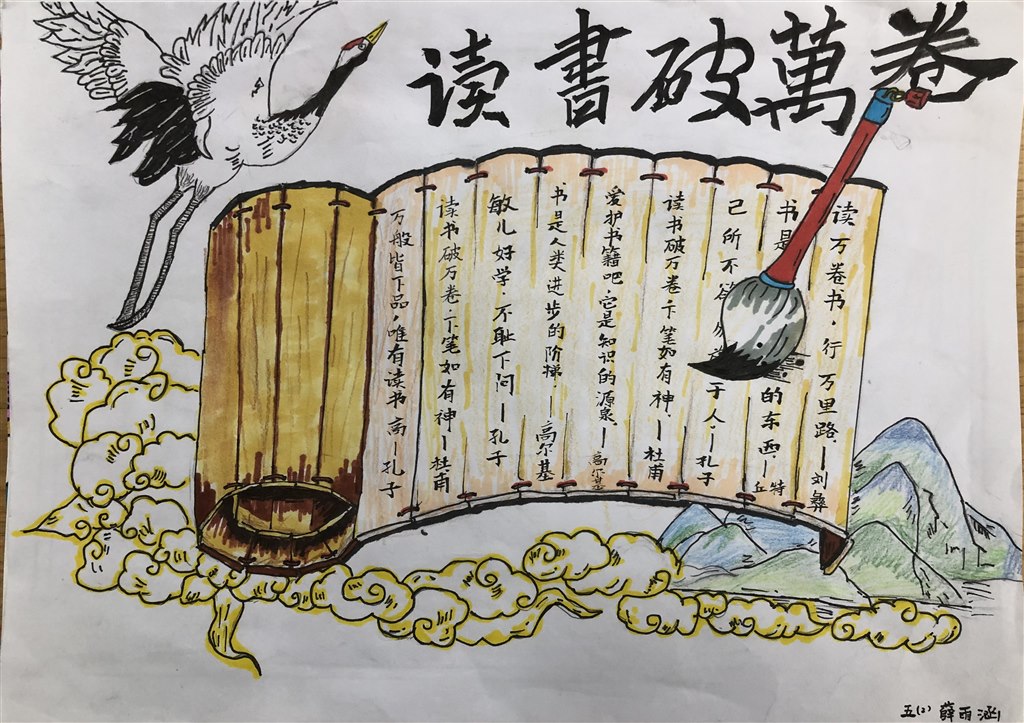 读书破萬卷
读万卷书,行万里路—刘彝
书是 的东西—特丘
己所不欲 于人.—孔子
读书破万卷.卞笔如有神.—杜甫
爱护书籍吧,它是知识的源泉.—高尔基
书是人类进步的阶梯.—高尔基
敏儿好学.不耻下问—孔子
读书破万卷.卞笔如有神—杜甫
万般皆下品,唯有读书高—孔子
五(2) 薛雨涵